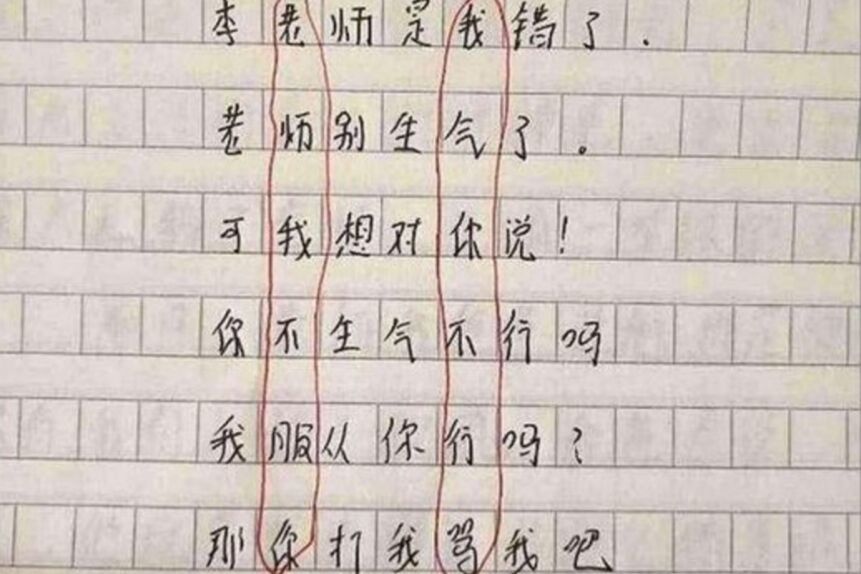 李老师是我错了.
老师别生气了。
可我想对你说!
你不生气不行吗
我服从你行吗?
那你打我骂我吧